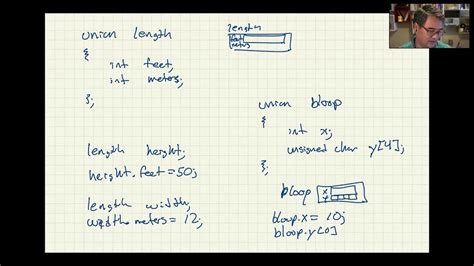 union length
{
int feet;
int meters;
};
length height;
height.feet=50;
length width;
width.meters=12;
length
feet
meters
union bloop
{
int x;
unsigned char y[4];
};
bloop
x
y
bloop.x= 10;
bloop.y[0]